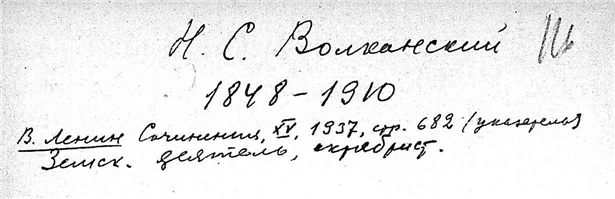 Н. С. Волконский
1848 – 1910
В. Ленин Сочинения, XV, 1937, стр. 682 (указатель)
Земск. деятель, октябрист.